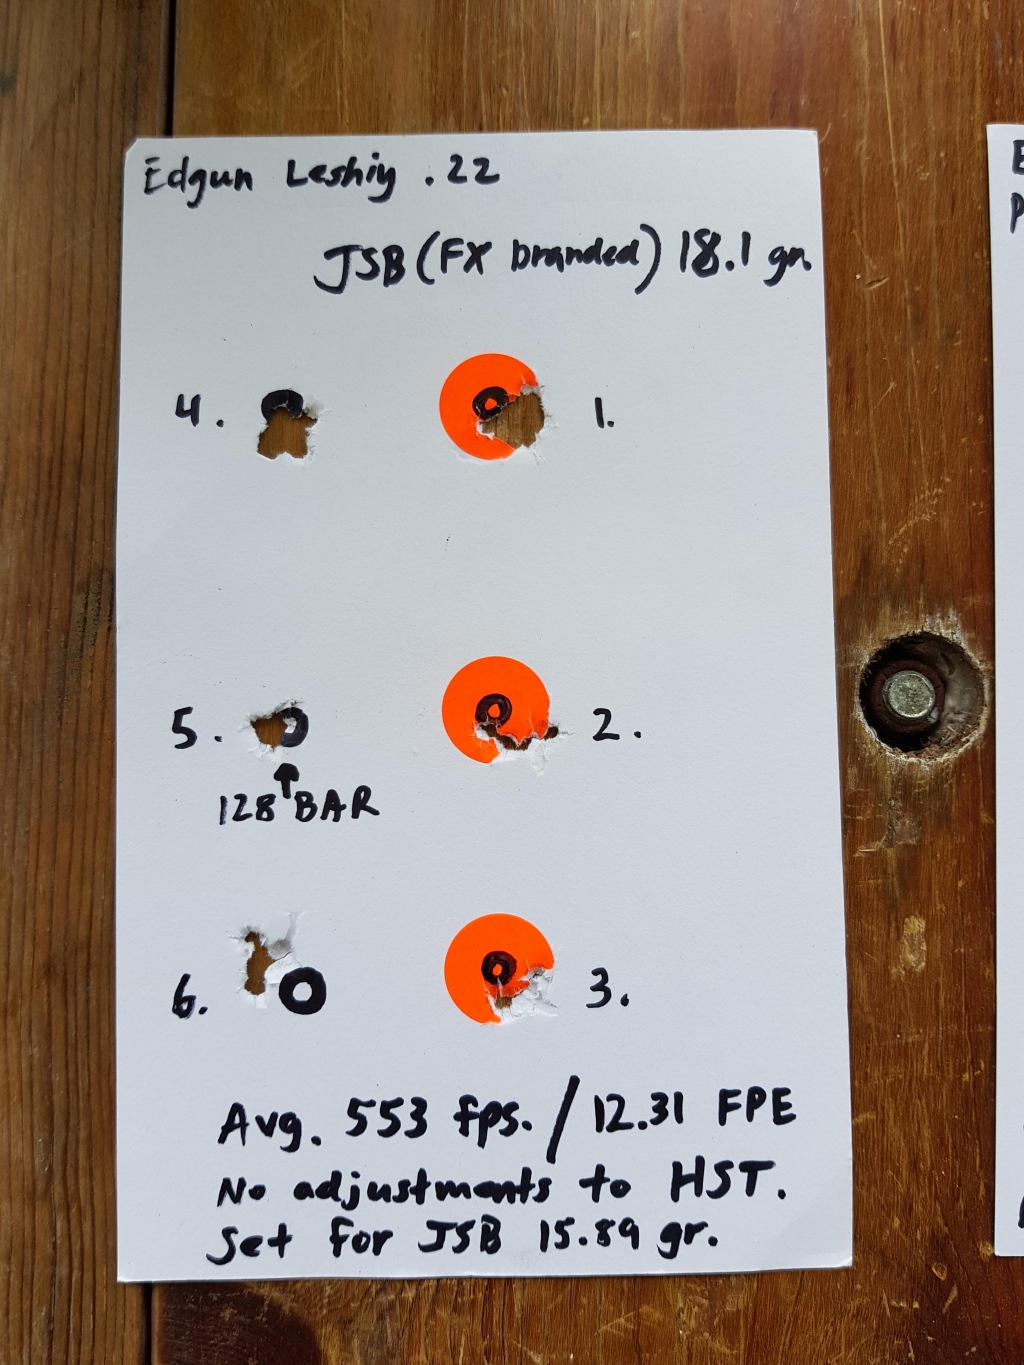 Edgun Leshiy .22
JSB (FX branded) 18.1 gr.
4.
1.
5.
2.
128 BAR
6.
3.
Avg. 553 fps. / 12.31 FPE
No adjustments to HST.
Set for JSB 15.89 gr.
E
P